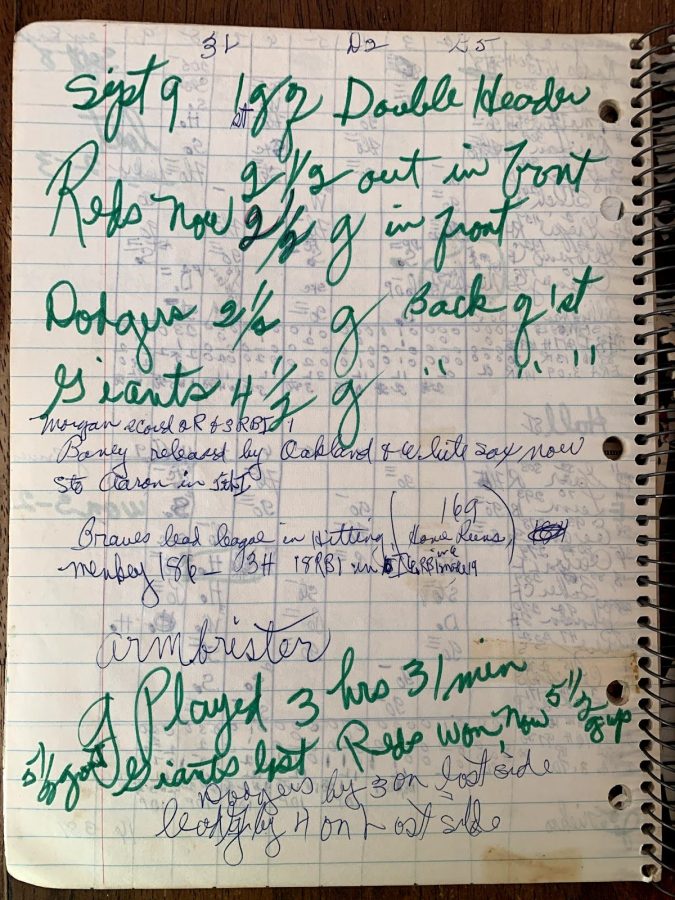 31 D2 L5
Sept 9 1st g of Double Header
2 1/2 out in front
Reds now 2 1/2 g in front
Dodgers 2 1/2 g Back of 1st
Giants 4 1/2 g " " "
Morgan scored 2R & 3RBI
Boney released by Oakland & White Sox now
Aaron in
Braves lead league in Hitting (169 Home Runs)
186 - 3H 18RBI in
armbrister
g Played 3 hrs 31 min
5 1/2 g out Giants lost Reds won now 5 1/2 g up
Dodgers by 3 on lost side
lead by 4 on Lost side